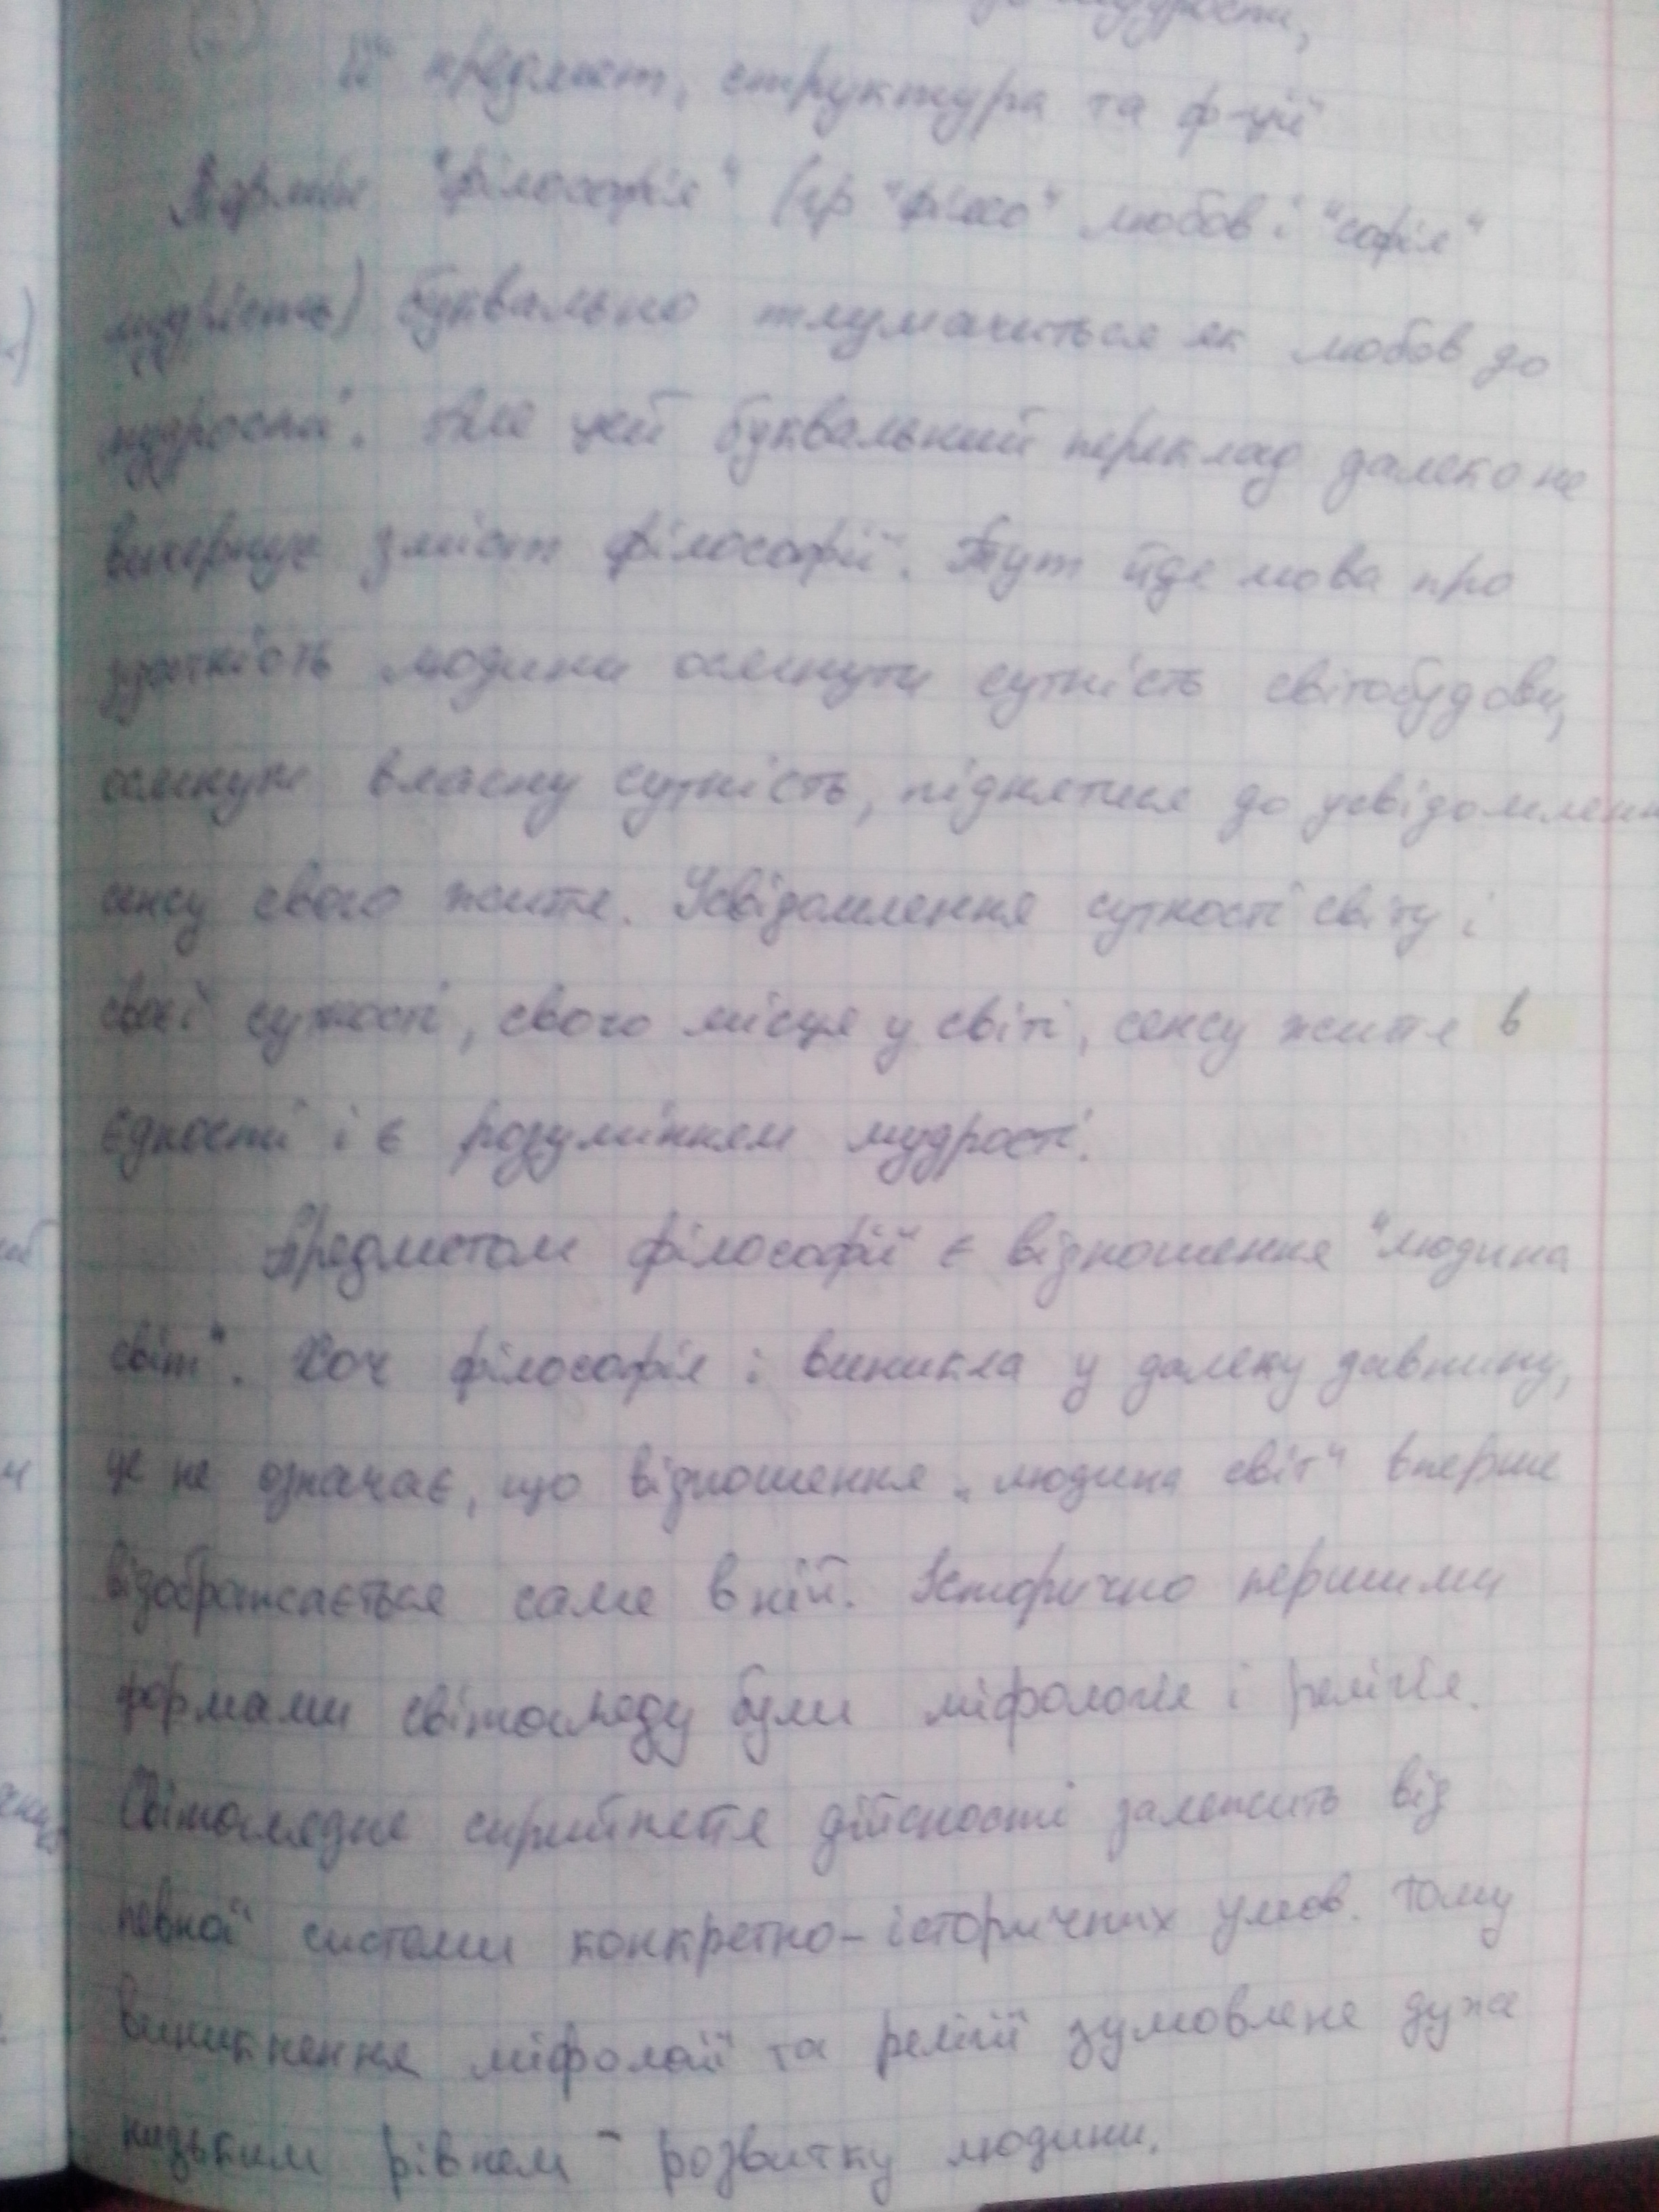 мудрости,
її предмет, структура та ф-ції
Термін "філософія" (гр "філео" любов і "софія"
мудрість) буквально тлумачиться як любов до
мудрості. Але цей буквальний переклад далеко не
вичерпує зміст філософії. Тут йде мова про
здатність людини осягнути сутність світобудови,
осягнути власну сутність, піднятися до усвідомлення
сенсу свого життя. Усвідомлення сутності світу і
своєї сутності, свого місця у світі, сенсу життя в
єдності і є розумінням мудрості.
Предметом філософії є відношення "людина
світ". Хоч філософія і виникла у далеку давнину,
це не означає, що відношення „людина світ" вперше
відображається саме в ній. Історично першими
формами світогляду були міфологія і релігія.
Світоглядне сприйняття дійсності залежить від
певної системи конкретно-історичних умов. Тому
виникнення міфології та релігії зумовлене дуже
низьким рівнем розвитку людини.